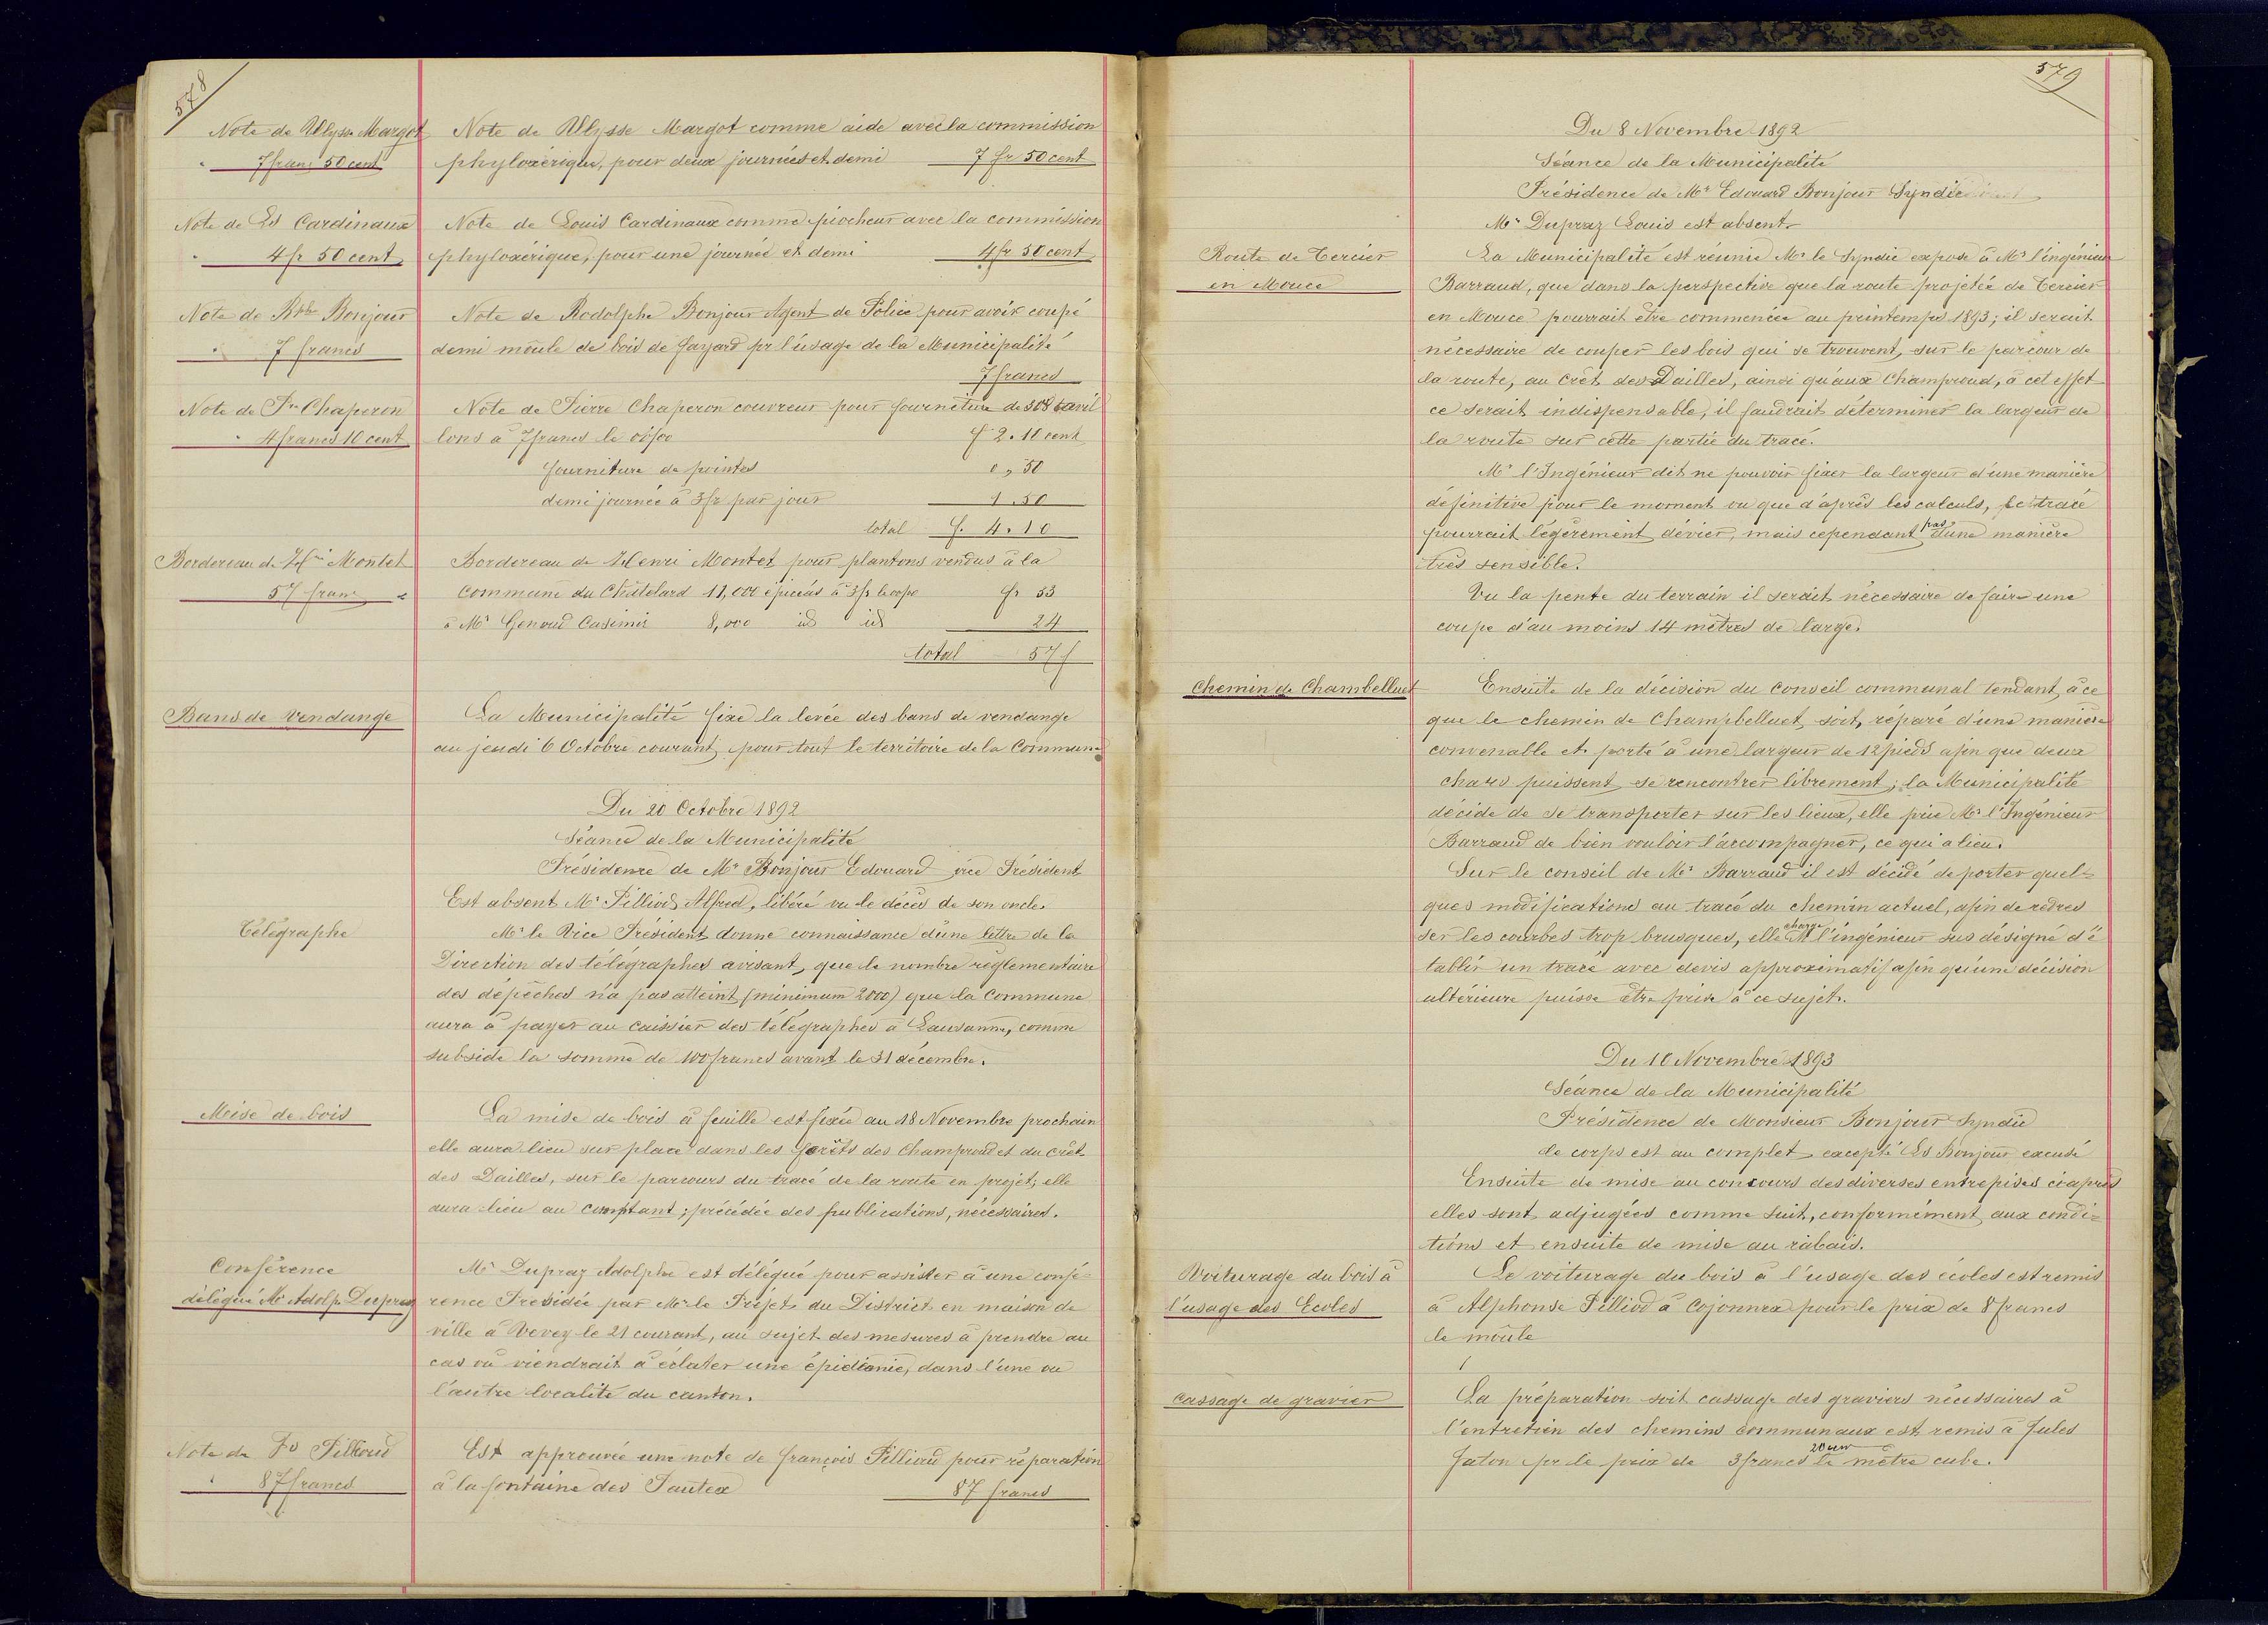 578
Note de Ulysse Margot
" 7 franc 50 cent
Note de Ulysse Margot comme aide avec la commission
phyloxérique, pour deux journées et demi 7 fr 50 cent
Note de Ls Cardinaux
" 4 fr 50 cent
Note de Louis Cardinaux comme piocheur avec la commission
phyloxérique, pour une journée et demi 4 fr 50 cent
Note de Rphe Bonjour
" 7 francs
Note de Rodolphe Bonjour Agent de Police pour avoir coupé
demi moule de bois de fayard pr l'usage de la Municipalité
7 francs
Note de Pre Chaperon
" 4 francs 10 cent
Note de Pierre Chaperon couvreur pour fourniture de 308 tavil
lons à 7 francs le 00/00 f 2.10 cent
fourniture de pointes 0,, 50
demi journée à 3 fr par jour 1.50
total f. 4.10
Bordereau de Hri Montet
57 franc
Bordereau de Henri Montet pour plantons vendus à la
Commune du Châtelard 11,000 épicéas à 3 fr le 00/00 fr 33
à Mr Genoud Casimir 8,000 id id 24
total 57 f
Bans de Vendange
La Municipalité fixe la levée des bans de vendange
au jeudi 6 Octobre courant, pour tout le territoire de la Commune
Du 20 Octobre 1892
Séance de la Municipalité
Présidence de Mr Bonjour Edouard vice Président
Est absent Mr Pilliod Alfred, libéré vu le décès de son oncle.
Télégraphe
Mr le Vice Président donne connaissance d'une lettre de la
Direction des télégraphes avisant, que le nombre règlementaire
des dépêches n'a pas atteint (minimum 2000) que la Commune
aura à payer au caissier des télégraphes à Lausanne, comme
subside la somme de 100 francs avant le 31 décembre.
Mise de bois
La mise de bois à feuille est fixée au 18 Novembre prochain
elle aura lieu sur place dans les forêts des Champroud et du Crêt
des Dailles, sur le parcours du tracé de la route en projet; elle
aura lieu au comptant; précédée des publications, nécessaires.
Conférence
délégué Mr Adolp. Dupraz
Mr Dupraz Adolphe est délégué pour assister à une confé-
rence Présidée par Mr le Préfet du District en maison de
ville à Vevey le 21 courant, au sujet des mesures à prendre au
cas où viendrait à éclater une épidémie, dans l'une ou
l'autre localité du canton.
Note de Fs Pilliod
" 87 francs
Est approuvée une note de François Pilliod pour réparation
à la fontaine des Pautex 87 francs
579
Du 8 Novembre 1892
Séance de la Municipalité
Présidence de Mr Edouard Bonjour Syndic
Mr Dupraz Louis est absent.
Route de Tercier
en Mouce
La Municipalité est réunie Mr le Syndic expose à Mr l'ingénieur
Barraud, que dans la perspective que la route projetée de Tercier
en Mouce pourrait être commencée au printemps 1893; il serait
nécessaire de couper les bois qui se trouvent, sur le parcour de
la route, au Crêt des Dailles, ainsi qu'aux Champroud, à cet effet
ce serait indispensable, il faudrait déterminer la largeur de
la route sur cette partie du tracé.
Mr l'Ingénieur dit ne pouvoir fixer la largeur d'une manière
définitive pour le moment vu que d'après les calculs, le tracé
pourrait légèrement dévier, mais cependant pas d'une manière
très sensible.
Vu la pente du terrain il serait nécessaire de faire une
coupe d'au moins 14 mètres de large.
Chemin de Chambelluet
Ensuite de la décision du Conseil communal tendant, à ce
que le chemin de Champbelluet, soit, réparé d'une manière
convenable et porté à une largeur de 12 pieds afin que deux
chars puissent se rencontrer librement; la Municipalité
décide de se transporter sur les lieux, elle prie Mr l'Ingénieur
Barraud de bien vouloir l'accompagner, ce qui a lieu.
Sur le conseil de Mr Barraud il est décidé de porter quel-
ques modifications au tracé du chemin actuel, afin de redres
ser les courbes trop brusques, elle charge Mr l'ingénieur sus désigné d'é
tablir un tracé avec devis approximatif afin qu'une décision
ultérieure puisse être prise à ce sujet.
Du 16 Novembre 1893
Séance de la Municipalité
Présidence de Monsieur Bonjour Syndic
le corps est au complet excepté Ls Bonjour excusé
Ensuite de mise au concours des diverses entrepises ci après
elles sont adjugées comme suit, conformément aux condi-
tions et ensuite de mise au rabais.
Voiturage du bois à
l'usage des Ecoles
Le voiturage du bois à l'usage des écoles est remis
à Alphonse Pilliod à Cojonnex pour le prix de 8 francs
le moule
Cassage de gravier
La préparation soit cassage des graviers nécessaires à
l'entretien des chemins communaux est remis à Jules
Jaton pr le prix de 3 francs 20 cent le mètre cube.